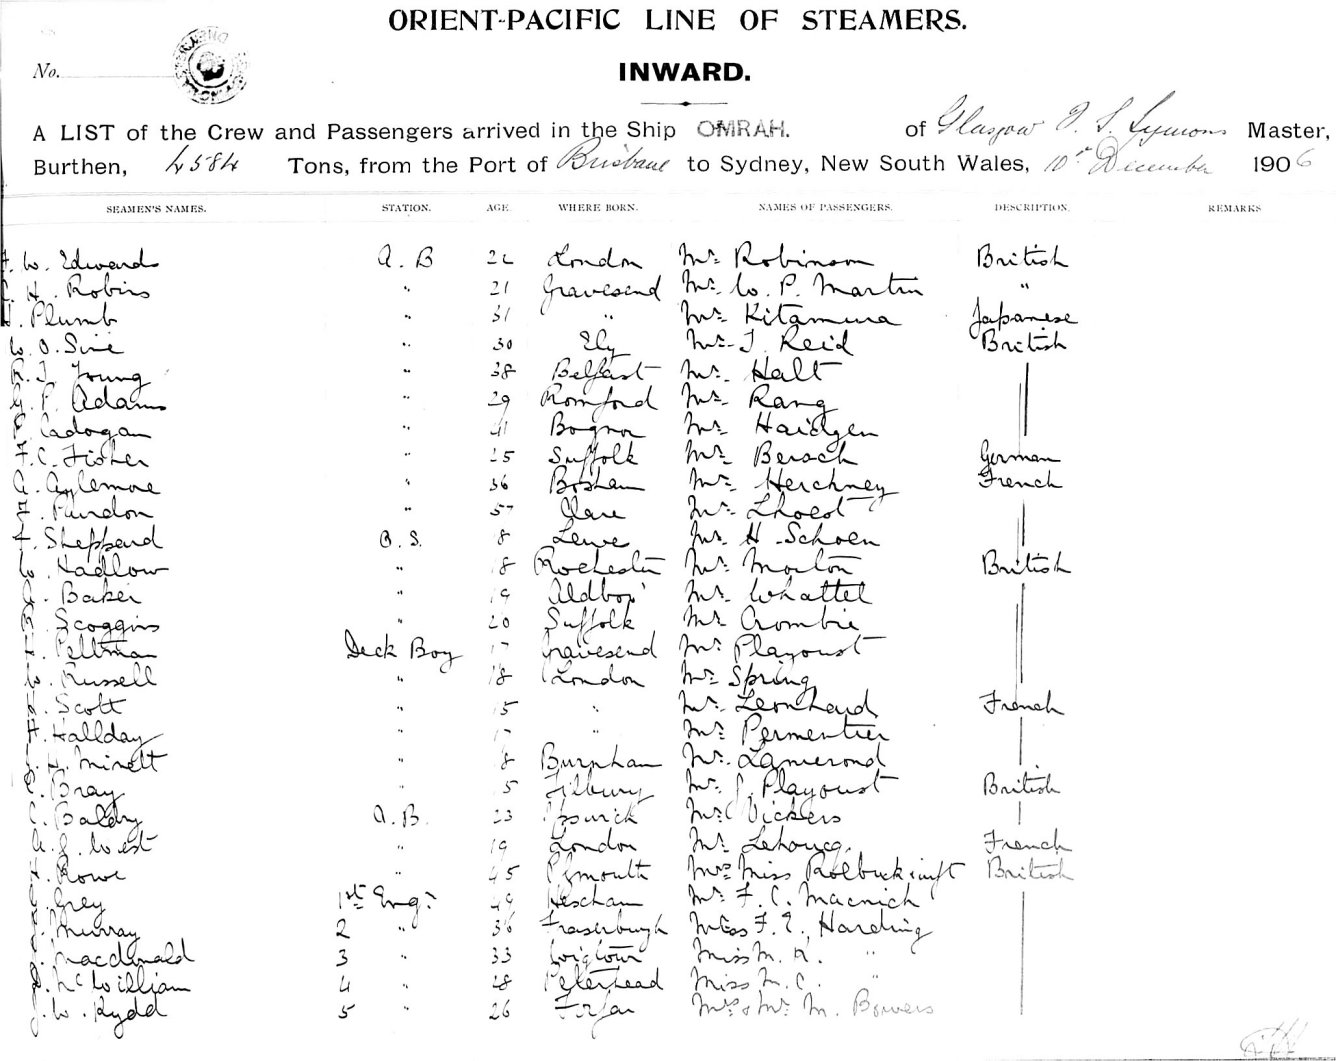 ORIENT-PACIFIC LINE OF STEAMERS.
No.
INWARD.
A LIST of the Crew and Passengers arrived in the Ship OMRAH. of Glasgow Symons Master,
Burthen, 4584 Tons, from the Port of Brisbane to Sydney, New South Wales, 10th December 1906
SEAMEN'S NAMES. STATION. AGE WHERE BORN. NAMES OF PASSENGERS. DESCRIPTION. REMARKS
W. Edwards A.B 22 London Mr. Robinson British
H. Robins " 21 Gravesend Mr. W. P. Martin "
Plumb " 31 " Mr. Kitamura Japanese
W. O. " 30 Ely Mr. J. Reid British
J. Young " 38 Belfast Mr. Halt
P. Adams " 29 Romford Mr. Rang
Cadogan " 41 Bognor Mr.
F. C. Fisher " 25 Suffolk Mr. Bersch German
A. Aylemore " 36 Bosham Mr. Herchney French
Purdon " 57 Clare Mr. Lhoest
Sheppard O.S. 8 Mr. H. Schoen
Hadlow " 18 Rochester Mr. Morton British
Baker " 19 Mr. Whattel
Scoggins " 20 Suffolk Mr. Crombie
Pellman Deck Boy 17 Gravesend Mr. Playoust
W. Russell " 18 London Mr. Spring
Scott " 15 " Mr. Leonhard French
H. Hallday " 17 " Mr. Permentier
H. Minett " 8 Burnham Mr. Lamerond
Bray " 15 Tilbury Mr. J. Playoust British
C. Baldry A.B. 23 Ipswich Mr. Vickers
A. J. West " 19 London Mr. Lehoucq. French
H. Rowe " 45 Plymouth Mrs Miss British
Grey 1st Engr 49 Mr. F. C. Macnich
J. Murray 2 " 36 Fraserburgh Miss F. E. Harding
J. Macdonald 3 " 33 Wigtown Miss M. K. "
D. McWilliam 4 " 28 Peterhead Miss M. C. "
J. W. Kydd 5 " 26 Forfar Mrs & Mr. M. Bowers